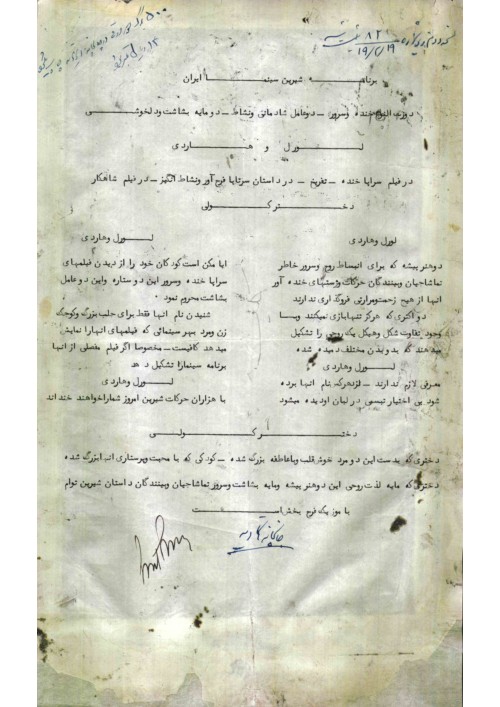 ۸۲
۱۹/۲/۱۹
برنامه شیرین سینما ایران
دوزب النوع خنده وسرور ــ دوعامل شادمانی ونشاط ــ دو مایه بشاشت ودلخوشی
لورل و هاردی
درفیلم سراپا خنده ــ تفریح ــ در داستان سرتاپا فرح آور ونشاط انگیز ــ در فیلم شاهکار
دخترکولی
لورل وهاردی
دوهنرپیشه که برای انبساط روح وسرور خاطر
تماشاچیان وبینندگان حرکات وژستهای خنده آور
آنها از هیچ زحمت ومرارتی فروگذاری ندارند
دو اکتری که هرگز تنها بازی نمیکنند وبا
وجود تفاوت شکل وهیکل یک روحی را تشکیل
میدهند که بدو بدن مختلف دمیده شده
لورل وهاردی
معرفی لازم ندارند ــ لزد هرکه نام آنها برده
شود بی اختیار تبسمی در لبان او دیده میشود
لورل وهاردی
آیا ممکن است کودکان خود را از دیدن فیلمهای
سراپا خنده وسرور این دو ستاره واین دو عامل
بشاشت محروم نمود
شنیدن نام آنها فقط برای جلب بزرگ وکوچک
زن ومرد بهر سینمائی که فیلمهای آنها را نمایش
میدهد کافیست ــ مخصوصا اگر فیلم مفصلی از آنها
برنامه سینما را تشکیل دهد
لورل وهاردی
با هزاران حرکات شیرین امروز شما را خواهند خنداند
دخترکولی
دختری که بدست این دو مرد خوش قلب وباعاطفه بزرگ شده ــ کودکی که با محبت وپرستاری آنها بزرگ شده
دختری که مایه لذت روحی این دوهنرپیشه ومایه بشاشت وسرور تماشاچیان وبینندگان داستان شیرین توام
با موزیک فرح بخش است